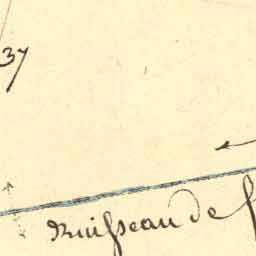 37
Ruisseau de